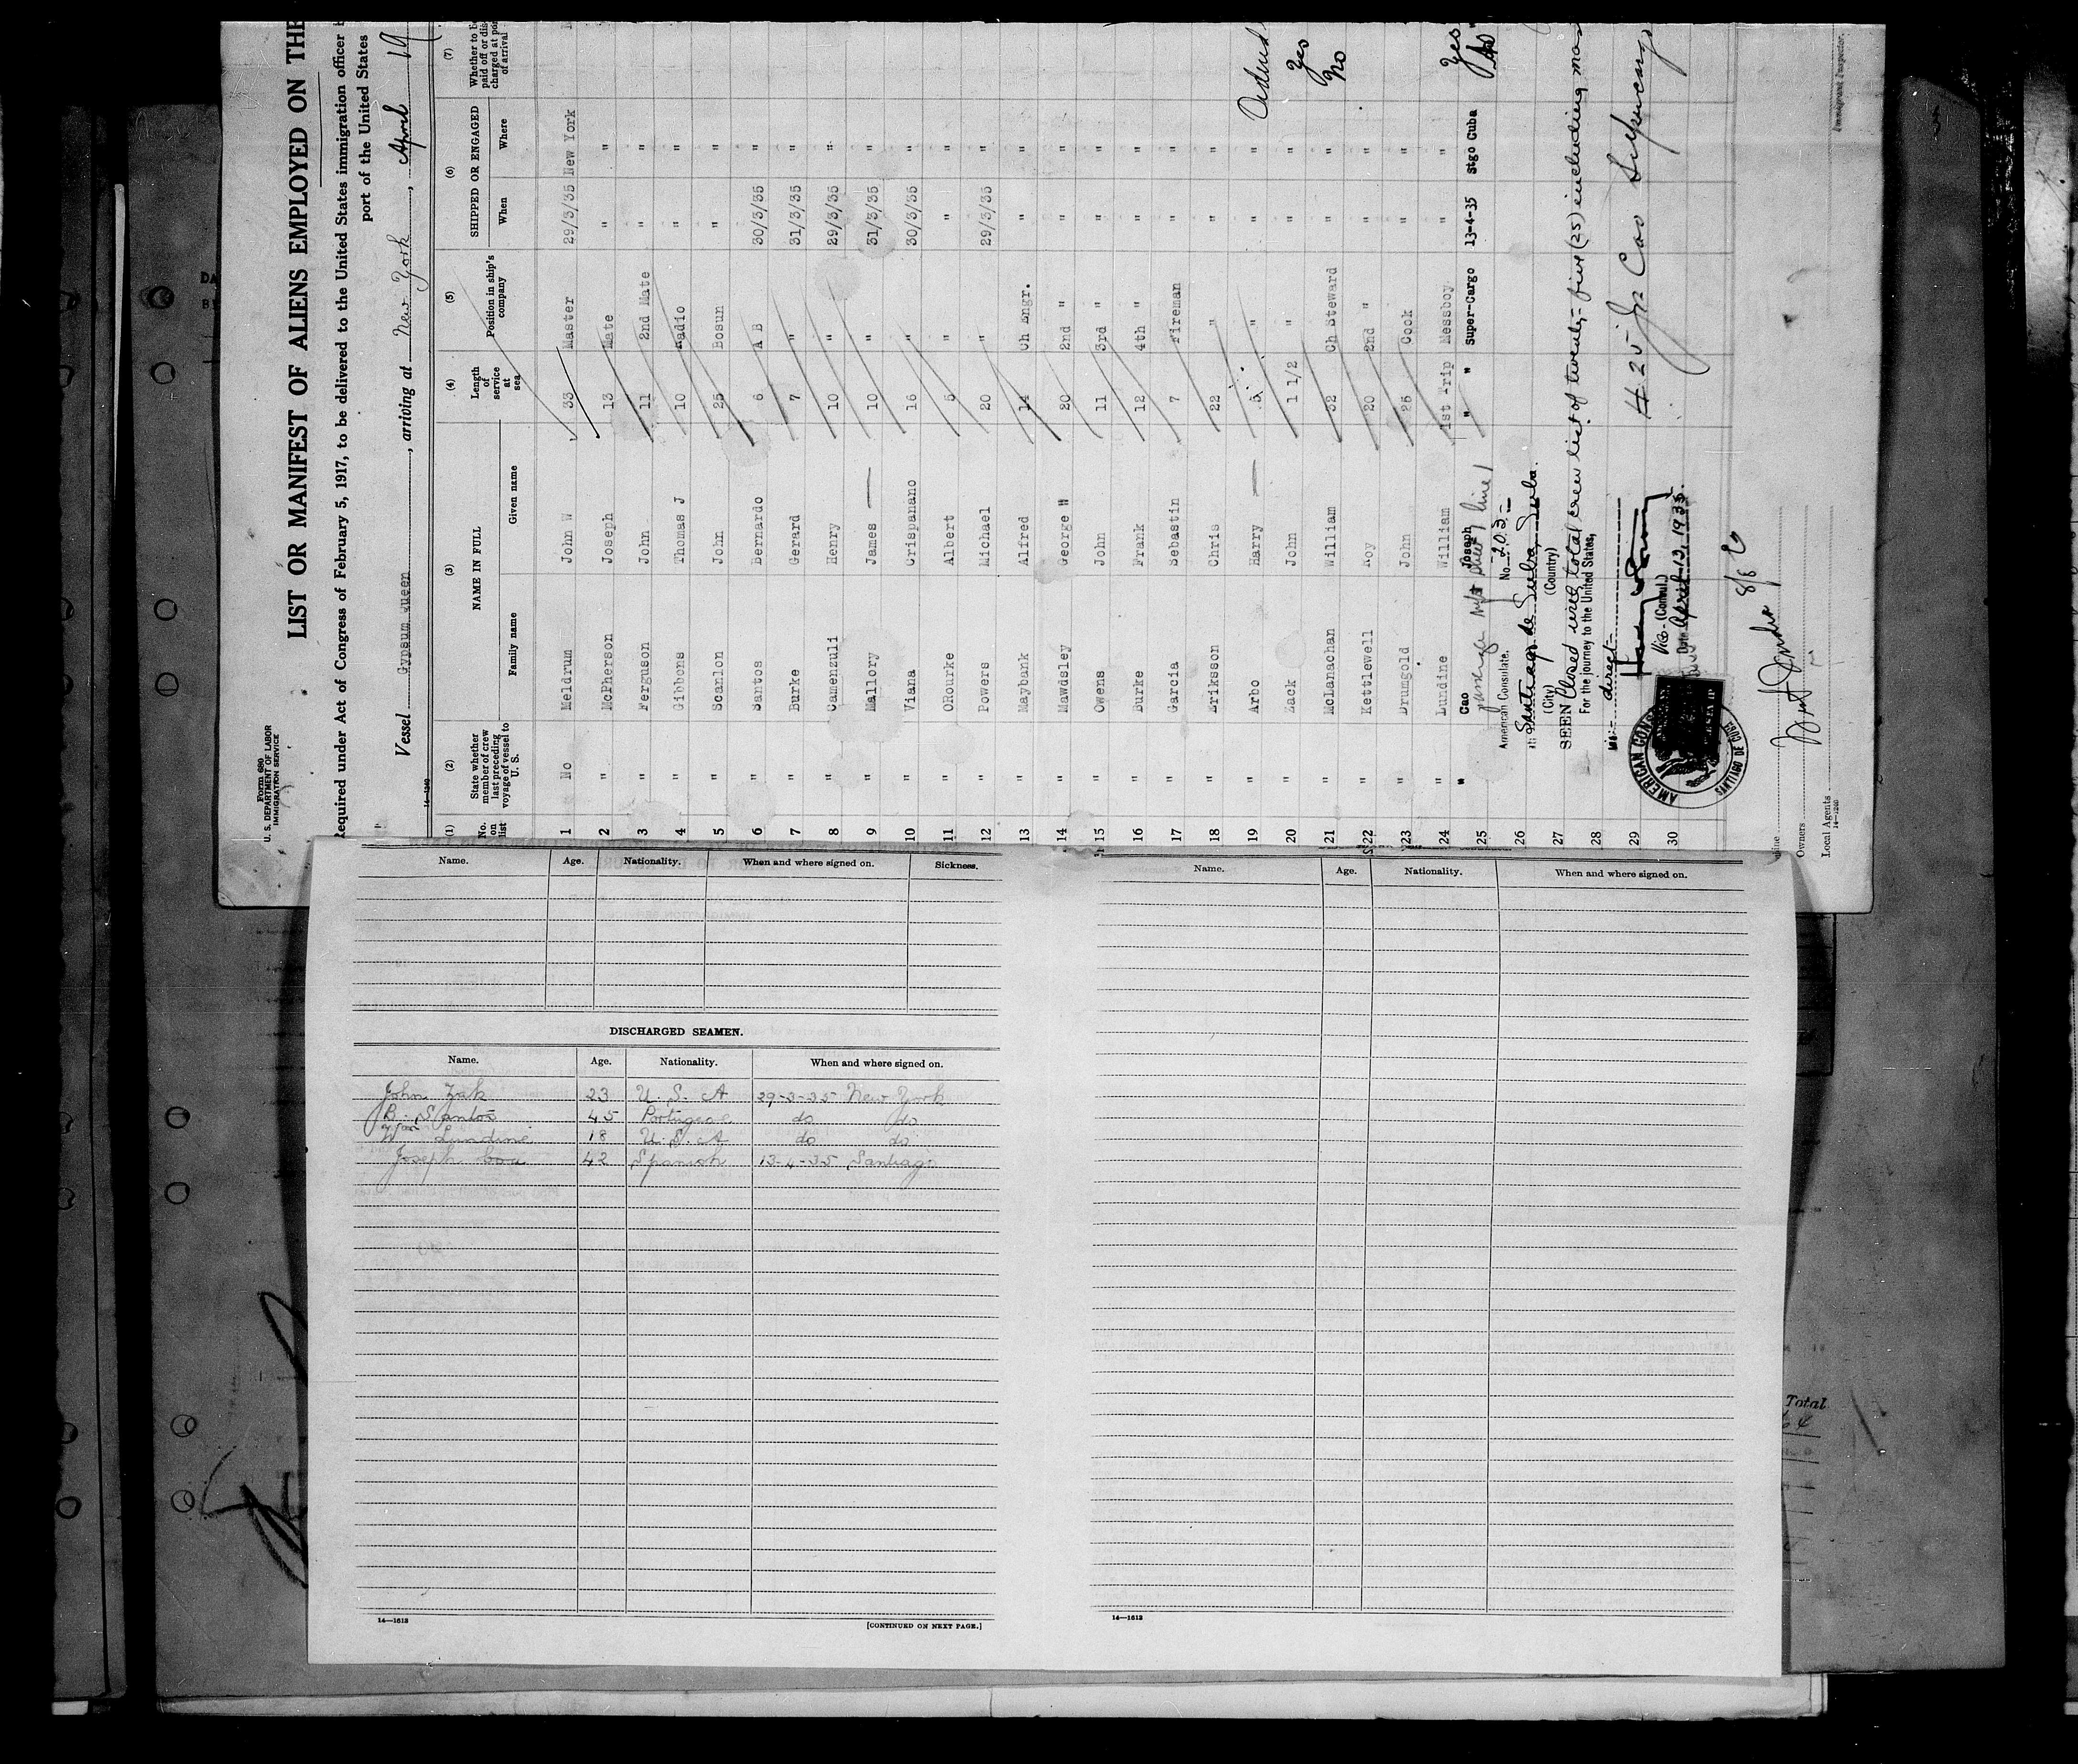 Form 680
U. S. DEPARTMENT OF LABOR
IMMIGRATION SERVICE
LIST OR MANIFEST OF ALIENS EMPLOYED ON THE
Required under Act of Congress of February 5, 1917, to be delivered to the United States immigration officer
port of the United States
Vessel Gypsum Queen, arriving at New York, April 19
14—1240
(1) (2) (3) (4) (5) (6) (7)
No. on list State whether member of crew last preceding voyage of vessel to U. S. NAME IN FULL Length of service at sea Position in ship's company SHIPPED OR ENGAGED Whether to be paid off or discharged at port of arrival
Family name Given name When Where
1 No Meldrum John W 33 Master 29/3/35 New York
2 " McPherson Joseph 13 Mate " "
3 " Ferguson John 11 2nd Mate " "
4 " Gibbons Thomas J 10 Radio " "
5 " Scanlon John 25 Bosun " "
6 " Santos Bernardo 6 A B 30/3/35 "
7 " Burke Gerard 7 " 31/3/35 "
8 " Camenzuli Henry 10 " 29/3/35 "
9 " Mallory James — 10 " 31/3/35 "
10 " Viana Crispanano 16 " 30/3/35 "
11 " ORourke Albert 5 " " "
12 " Powers Michael 20 " 29/3/35 "
13 " Maybank Alfred 14 Ch Engr. " "
14 " Mawdsley George H 20 2nd " " "
15 " Owens John 11 3rd " " "
16 " Burke Frank 12 4th " " "
17 " Garcia Sebastin 7 Fireman " "
18 " Eriksson Chris 22 " " "
19 " Arbo Harry — 5 " " "
20 " Zack John 1 1/2 " " " Yes
21 " McLanachan William 32 Ch Steward " " No
22 " Kettlewell Roy 20 2nd " " "
23 " Drumgold John 26 Cook " "
24 " Lundine William 1st Trip Messboy " " Yes
25 " Cao Joseph " " Super-Cargo 13-4-35 Stgo Cuba
American Consulate. No. 203-
26 at Santiago de Cuba, Cuba.
(City) (Country)
27 SEEN Closed with total crew list of twenty-five (25) including master
For the journey to the United States,
28 direct
29 # 25 Cao Supercargo
Vice-(Consul.)
30 Date April 13, 1935.
AMERICAN CONSULATE
SANTIAGO DE CUBA
Owners
Local Agents
14—1240
Immigrant Inspector.
Name. Age. Nationality. When and where signed on. Sickness.
DISCHARGED SEAMEN.
Name. Age. Nationality. When and where signed on.
John Zak 23 U. S. A 29-3-35 New York
B. Santos 45 Portugese do do
Wm Lundine 18 U. S. A do do
Joseph Cao 42 Spanish 13-4-35 Santiago
14—1613
[CONTINUED ON NEXT PAGE.]
Name. Age. Nationality. When and where signed on.
14—1613
Total